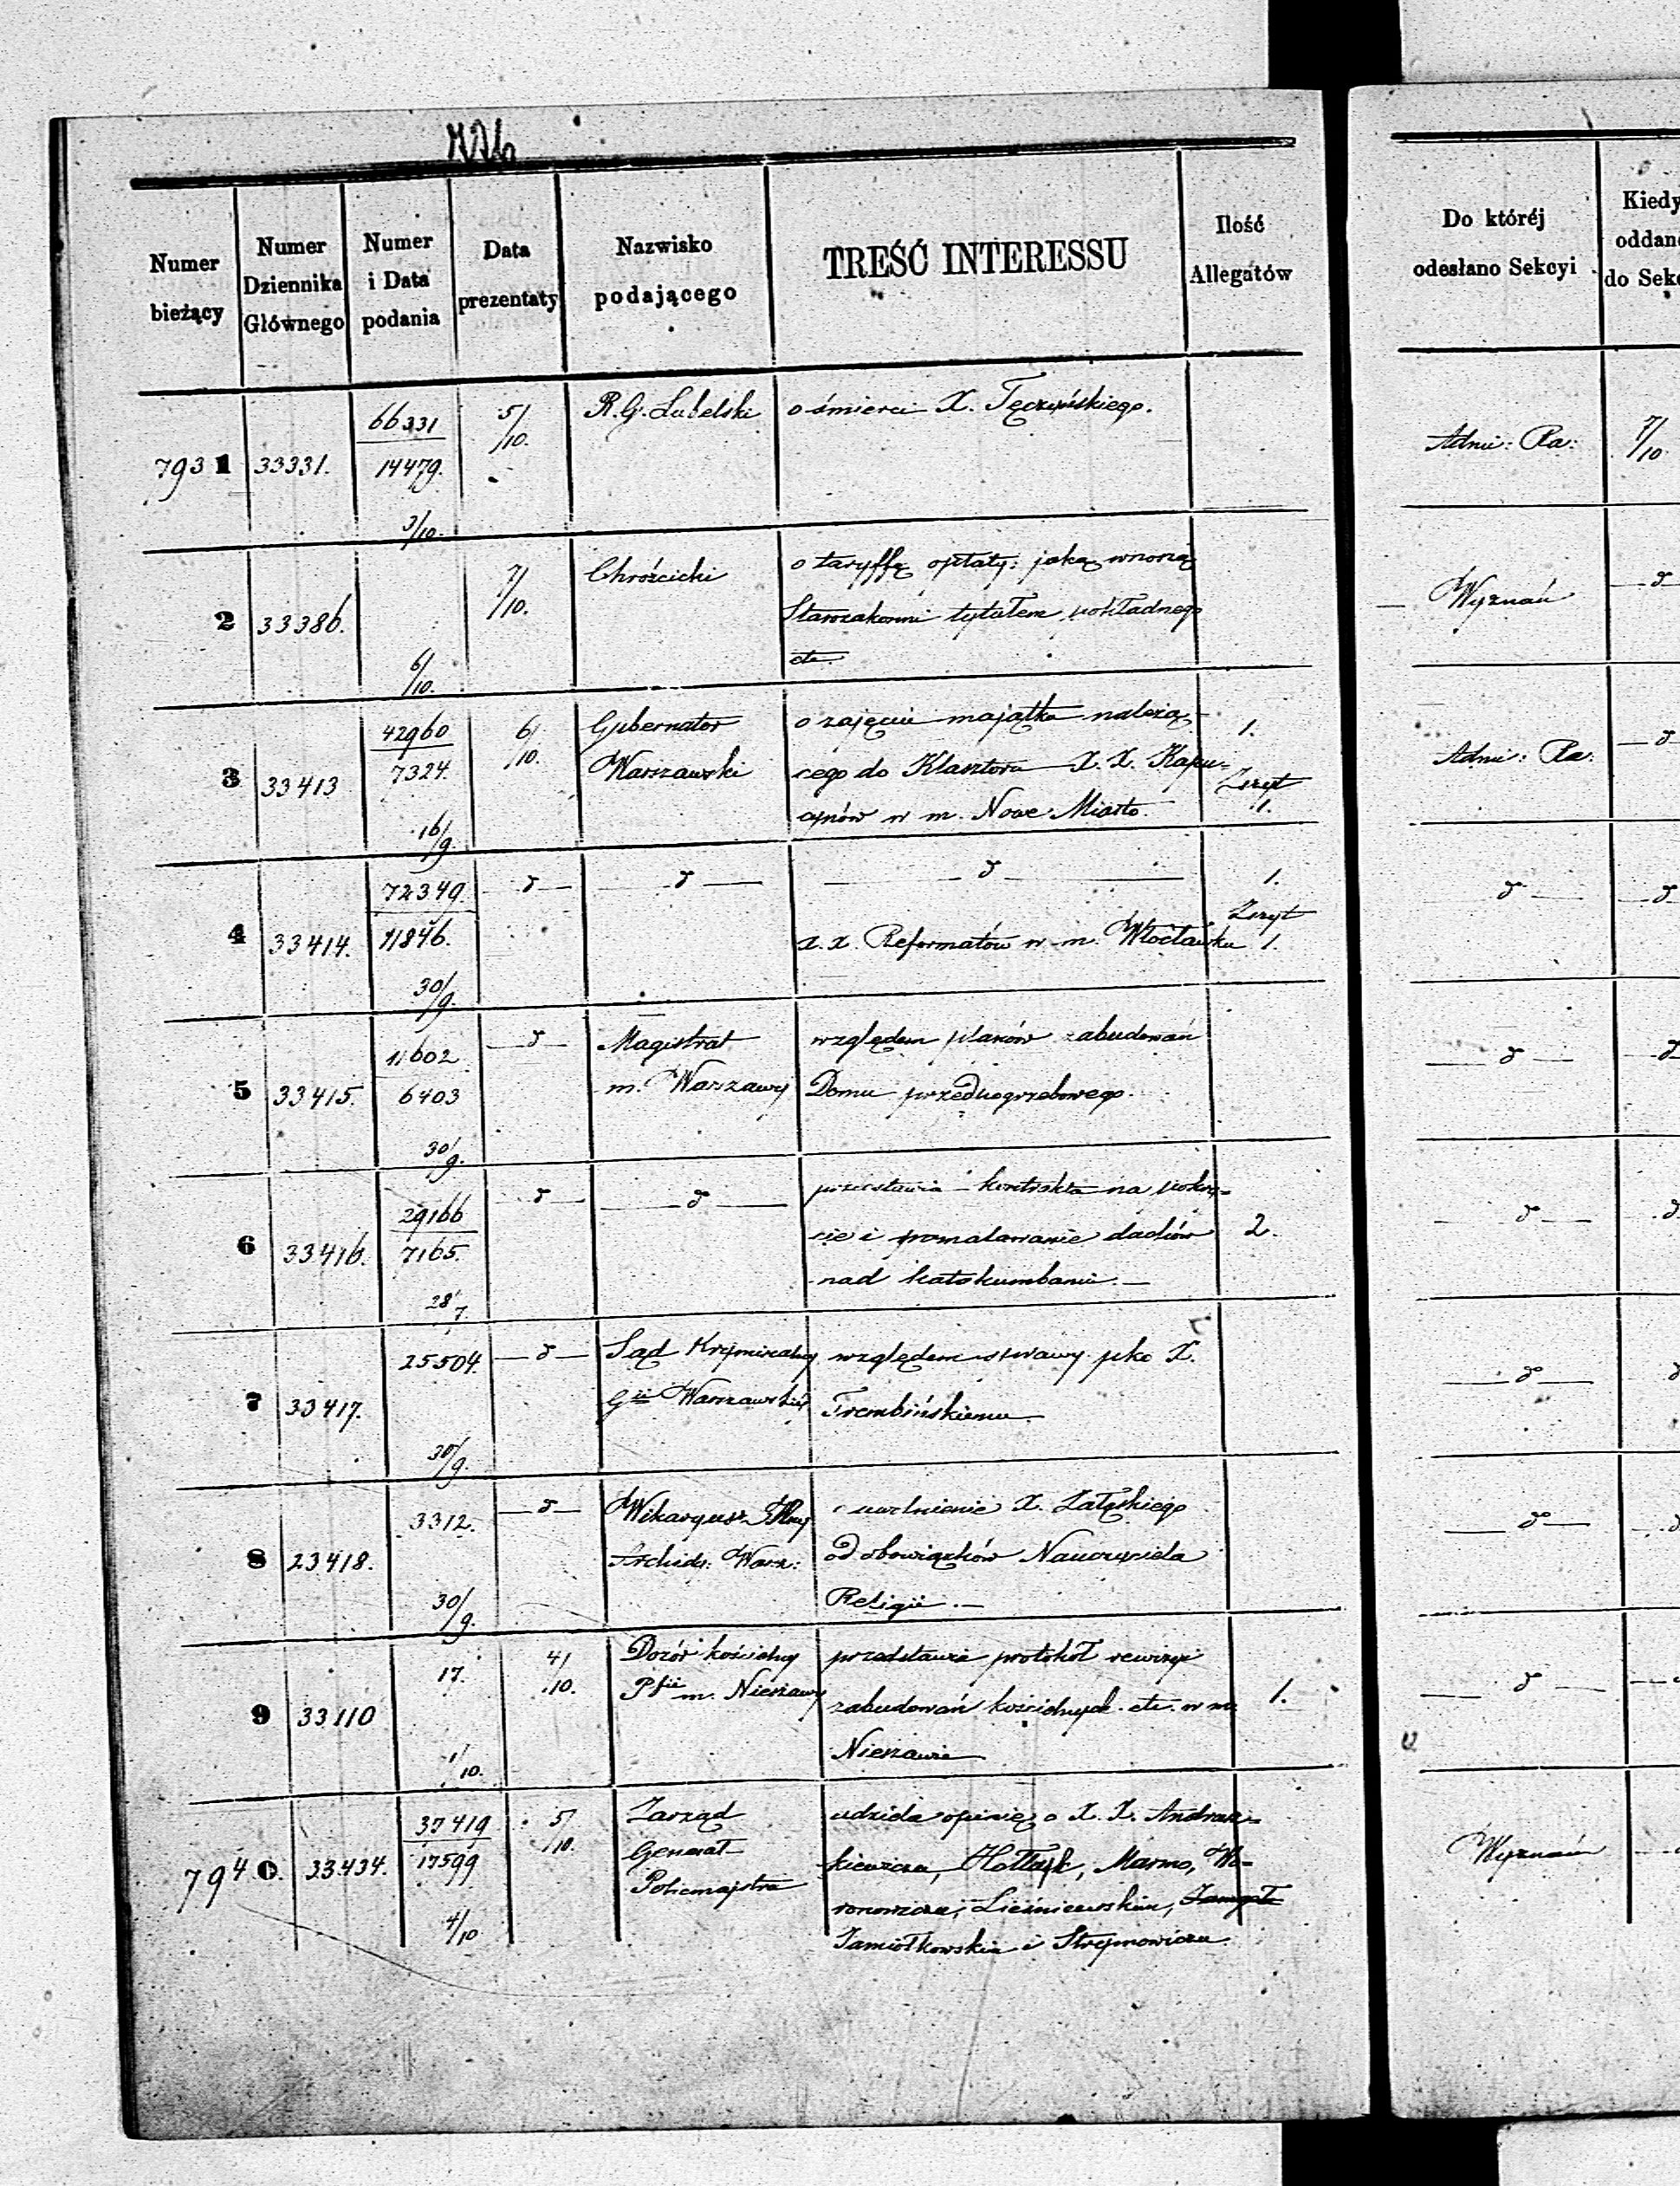 Numer bieżący
Numer Dziennika Głównego
Numer i Data podania
Data prezentaty
Nazwisko podającego
TREŚĆ INTERESSU
Ilość Allegatów
Do któréj odesłano Sekcyi
Kiedy oddano do Sekc
7931 33331. 66331 14479. 3/10. 5/10. R. G. Lubelski o śmierci X. Tęczyńskiego. Admi: Ra: 7/10
2 33386. 6/10. 7/10. Chróścicki o taryffę opłaty: jaką wnoszą
Starozakonni tytułem pokładnego
etc.
Wyznań d
3 33413 42960 7324. 16/9. 6/10. Gubernator o zajęcie majątku należą- 1.
Warszawski cego do Klasztoru X. X. Kapu- Zeszyt
cynów w m. Nowe Miasto. 1.
Admi: Ra: d
4 33414. 72349. 11846. 30/9. d d d 1.
Zeszyt
x. x. Reformatów w m. Włocławku 1.
d d
5 33415. 11602 6403 30/9. d Magistrat względem planów zabudowań
m. Warszawy Domu przedpogrzebowego.
d d
6 33416. 29166 7165. 28/7. d d przedstawia kontrakta na pokry-
cie i pomalowanie dachów 2.
nad katakumbami.
d d
7 33417. 25504. 30/9. d Sąd Kryminalny względem sprawy pko X.
Gii Warszawskiéj Trembińskiemu
d d
8 23418. 3312. 30/9. d Wikaryusz o uwolnienie X. Załęskiego
Archid: Warsz: od obowiązków Nauczyciela
Religii.
d
9 33110 17. 1/10. 4/10. Dozór kościelny przedstawia protokół rewizyi
Pfii m. Nieszawy zabudowań kościelnych etc. w m. 1.
Nieszawie
d
7940. 33434. 37419 17599 4/10 5/10. Zarząd udziela opinię o X. X. Andrusz-
Generał kiewicza, Hołłayk, Marmo, Wo-
Policmajstra ronowicza, Liśniewskim,
Jamiołkowskim i Strejmowiczu
Wyznań